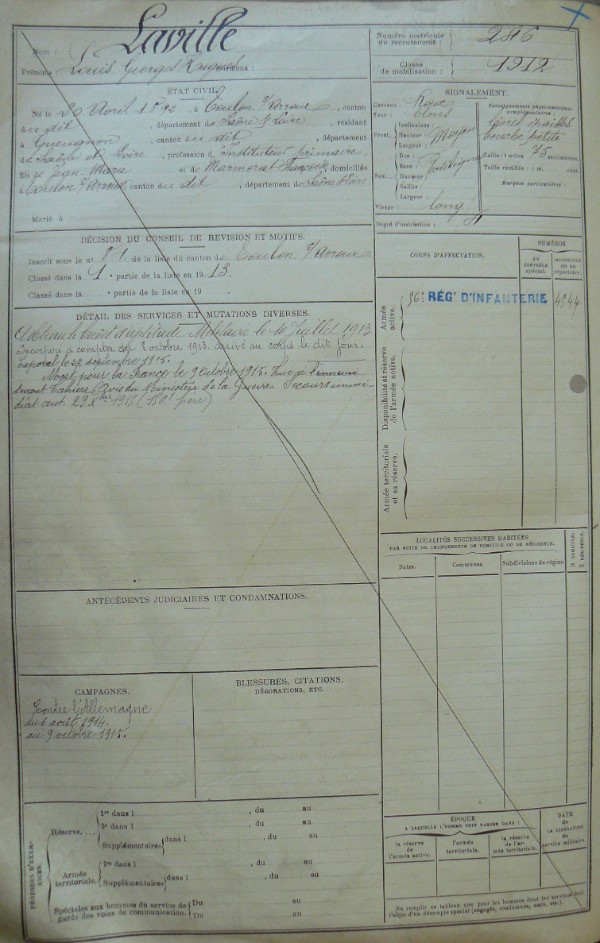 Nom : Laville
Prénoms : Louis Georges surnoms :
Numéro matricule
du recrutement : 286
Classe
de mobilisation : 1912
ÉTAT CIVIL.
Né le 20 Avril 1892, à Toulon s/Arroux, canton
du dit, département de Saône & Loire, résidant
à Gueugnon, canton du dit, département
de Saône et Loire, profession d'instituteur primaire,
fils de Jean Marie et de Marmorat Françoise, domiciliés
à Toulon s/Arroux, canton du dit, département de Saône & Loire
Marié à
SIGNALEMENT.
Cheveux
Yeux bleus
Front. Inclinaison :
Hauteur : Moyen
Largeur :
Nez. Dos :
Base :
Hauteur :
Saillie :
Largeur :
Visage : long
Renseignements physionomiques
complémentaires :
bouche petite
Taille : 1 mètre 75 centimètres
Taille rectifiée : 1 m. cent.
Marques particulières :
Degré d'instruction :
DÉCISION DU CONSEIL DE RÉVISION ET MOTIFS.
Inscrit sous le n° de la liste du canton de Toulon s/Arroux
Classé dans la 1e partie de la liste en 1913.
Classé dans la e partie de la liste en 19
CORPS D'AFFECTATION.
NUMÉROS
au contrôle spécial.
au répertoire.
Armée active.
RÉGT D'INFANTERIE
Disponibilité et réserve de l'armée active.
Armée territoriale et sa réserve.
DÉTAIL DES SERVICES ET MUTATIONS DIVERSES.
A obtenu le brevet d'aptitude Militaire le Juillet 1913
Incorporé à compter du 8 octobre 1913. arrivé au corps le dit jour.
Caporal le 22 septembre 1915.
Mort pour la France le 9 octobre 1915. Tué à l'ennemi
devant Tahure (Avis du Ministère de la Guerre. Secours immé-
diat aut. (150f père)
LOCALITÉS SUCCESSIVES HABITÉES
PAR SUITE DE CHANGEMENTS DE DOMICILE OU DE RÉSIDENCE.
Dates. Communes. Subdivisions de région D. DOMICILE. R. RÉSIDENCE.
ANTÉCÉDENTS JUDICIAIRES ET CONDAMNATIONS.
CAMPAGNES.
Contre l'Allemagne
du août 1914.
au 9 octobre 1915.
BLESSURES, CITATIONS,
DÉCORATIONS, ETC.
PÉRIODES D'EXERCICES.
Réserve.
1re dans l , du au
2e dans l , du au
Supplémentaires dans l , du au
Armée territoriale.
1re dans l , du au
Supplémentaires dans l , du au
Spéciales aux hommes du service de
garde des voies de communication.
Du au
Du au
ÉPOQUE
A LAQUELLE L'HOMME DOIT PASSER DANS :
la réserve de l'armée active.
l'armée territoriale.
la réserve de l'armée territoriale.
DATE
DE LA LIBÉRATION
du service militaire.
Ne remplir ce tableau que pour les hommes dont les services sont
l'objet d'un décompte spécial (engagés, condamnés, omis, etc.)